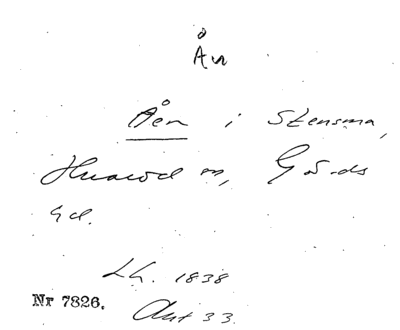 Ån
Åen i Stensma,
Huaröd sn, Gärds
hd.
LG. 1838
Nr 7826. Akt 33.